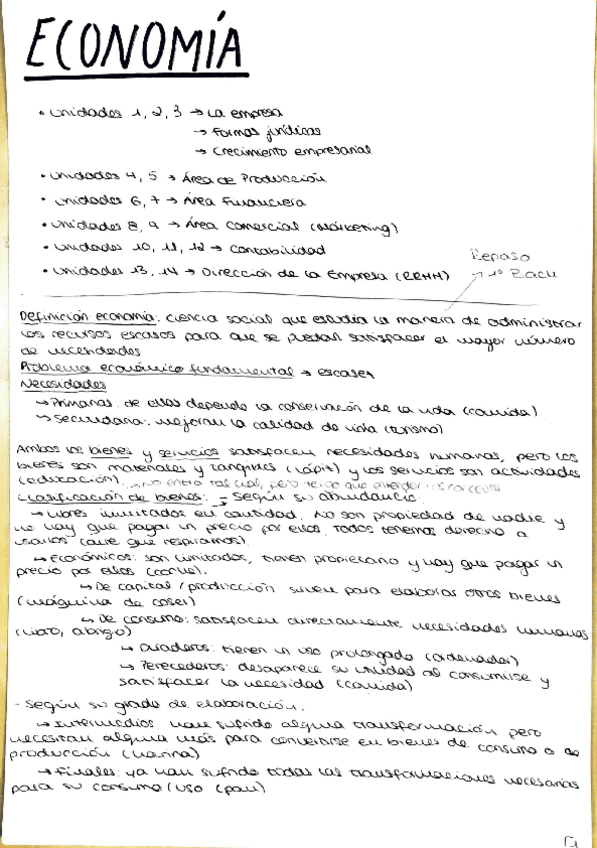 ECONOMÍA
• Unidades 1, 2, 3 → La empresa
→ Formas jurídicas
→ Crecimiento empresarial
• Unidades 4, 5 → Área de Producción
• Unidades 6, 7 → Área Financiera
• Unidades 8, 9 → Área Comercial (Márketing)
• Unidades 10, 11, 12 → Contabilidad
• Unidades 13, 14 → Dirección de la Empresa (RRHH)
Repaso
→ 1º Bach
Definición economía: ciencia social que estudia la manera de administrar
los recursos escasos para que se puedan satisfacer el mayor número
de necesidades
Problema económico fundamental → escasez
Necesidades
→ Primarias: de ellas depende la conservación de la vida (comida)
→ Secundaria: mejoran la calidad de vida (turismo)
Ambos los bienes y servicios satisfacen necesidades humanas, pero los
bienes son materiales y tangibles (lápiz) y los servicios son actividades
(educación). no entra tal cual, pero tengo que entender
Clasificación de bienes: - Según su abundancia
→ Libres: ilimitados en cantidad. No son propiedad de nadie y
no hay que pagar un precio por ellos. Todos tenemos derecho a
usarlos (aire que respiramos).
→ Económicos: son limitados, tienen propietario y hay que pagar un
precio por ellos (coche).
↳ De capital / producción: sirven para elaborar otros bienes
(máquina de coser)
↳ De consumo: satisfacen directamente necesidades humanas
(libro, abrigo)
↳ Duraderos: tienen un uso prolongado (ordenador)
↳ Perecederos: desaparece su utilidad al consumirse y
satisfacer la necesidad (comida)
- Según su grado de elaboración.
→ Intermedios: han sufrido alguna transformación pero
necesitan alguna más para convertirse en bienes de consumo o de
producción (harina)
→ Finales: ya han sufrido todas las transformaciones necesarias
para su consumo/uso (pan)